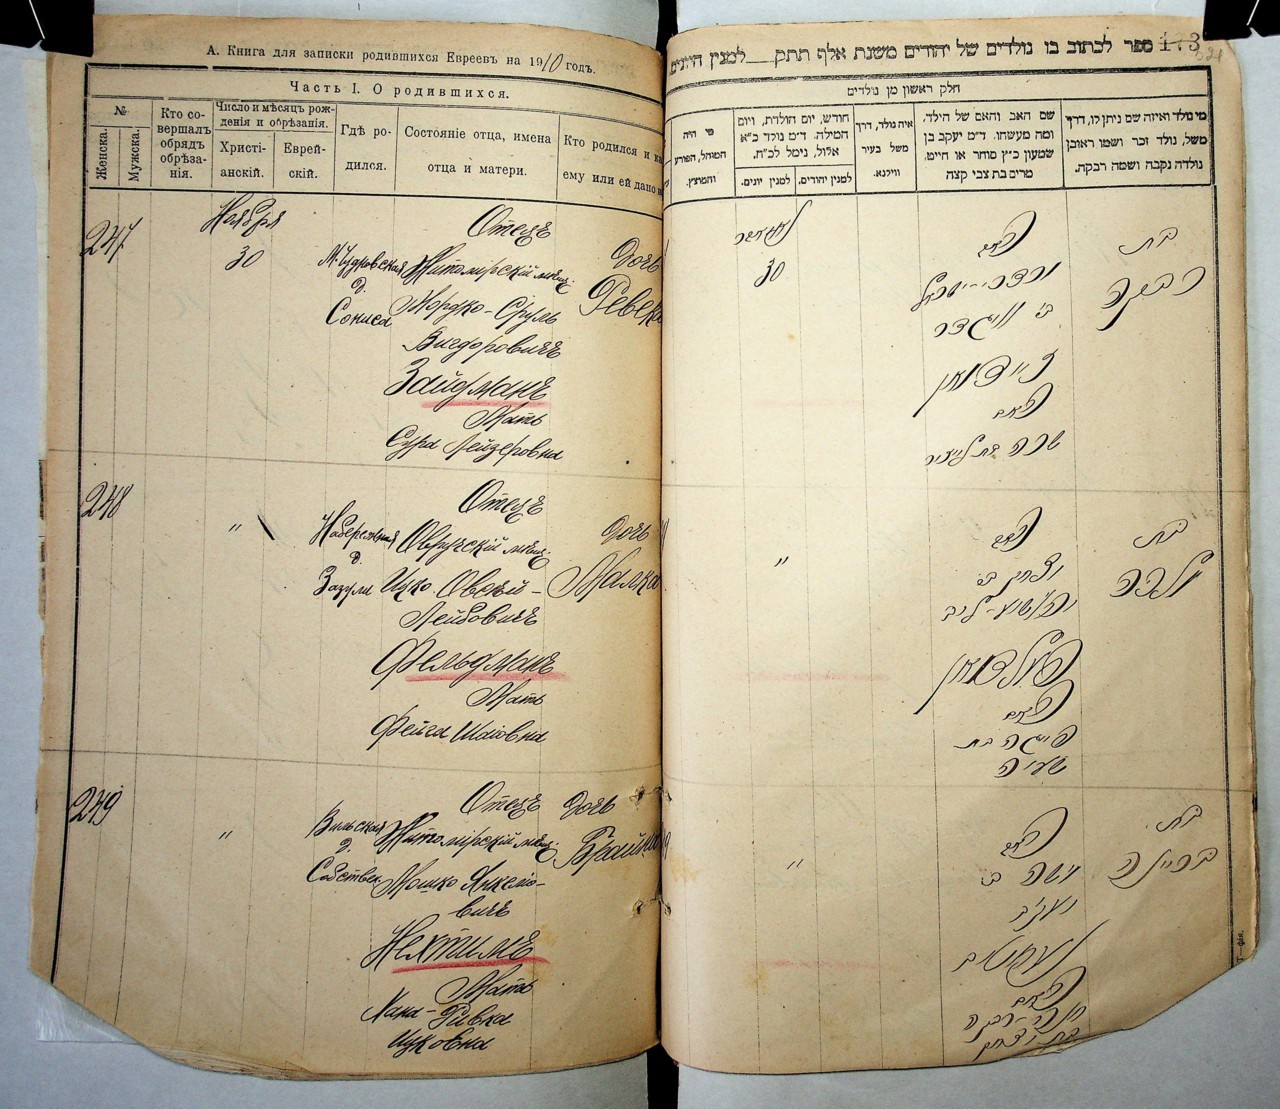 А. Книга для записки родившихся Евреевъ на 1910 годъ.
Часть I. О родившихся.
№
Женска.
Мужска.
Кто со-
вершалъ
обрядъ
обрѣза-
нія.
Число и мѣсяцъ рож-
денія и обрѣзанія.
Христі-
анскій.
Еврей-
скій.
Гдѣ ро-
дился.
Состояніе отца, имена
отца и матери.
Кто родился и
ему или ей дано
247
Ноября
30
М. Чудновская
д.
Отецъ
Житомирскій мѣщ.
Мордко-Сруль
Вигдоровичъ
Зайдманъ
Мать
Сура Лейзеровна
Дочь
Ревека
248
"
Набережная
д.
Отецъ
Овручскій мѣщ.
Ицко Овсѣй-
Лейбовичъ
Фельдманъ
Мать
Фейга Шаіовна
Дочь
Малка
249
"
Вильская
д.
Собствен.
Отецъ
Житомірскій мѣщ.
Мошко Янкеліо-
вичъ
Нехтилъ
Мать
Хана-Ривка
Ицковна
Дочь
Брайна
ספר לכתוב בו נולדים של יהודים משנת אלף תתק למנין היונים
173
חלק ראשון מן נולדים
מי נולד ואיזה שם ניתן לו, דרך
משל, נולד זכר ושמו ראובן
נולדה נקבה ושמה רבקה.
שם האב והאם של הילד,
ומה מעשהו. ד״מ יעקב בן
שמעון כ״ץ סוחר או חייט,
מרים בת צבי קצה
איה נולד, דרך
משל בעיר
ווילנא.
חודש, יום הולדת, ויום
המילה. ד״מ נולד כ״א
אלול, נימל לכ״ח.
למנין יהודים.
למנין יונים.
מי היה
המוהל, הפורע
והמוצץ.
בת
רבקה
האב
מרדכי-ישראל
ב׳ אוויגדר
זיידמאן
האם
שרה בת לייזיר
30
בת
מלכה
האב
יצחק ב׳
יהושע-ליב
פעלדמאן
האם
פייגה בת
שעיה
"
בת
בריינה
האב
משה ב׳
יעקב
האם
חנה-רבקה
בת יצחק
"